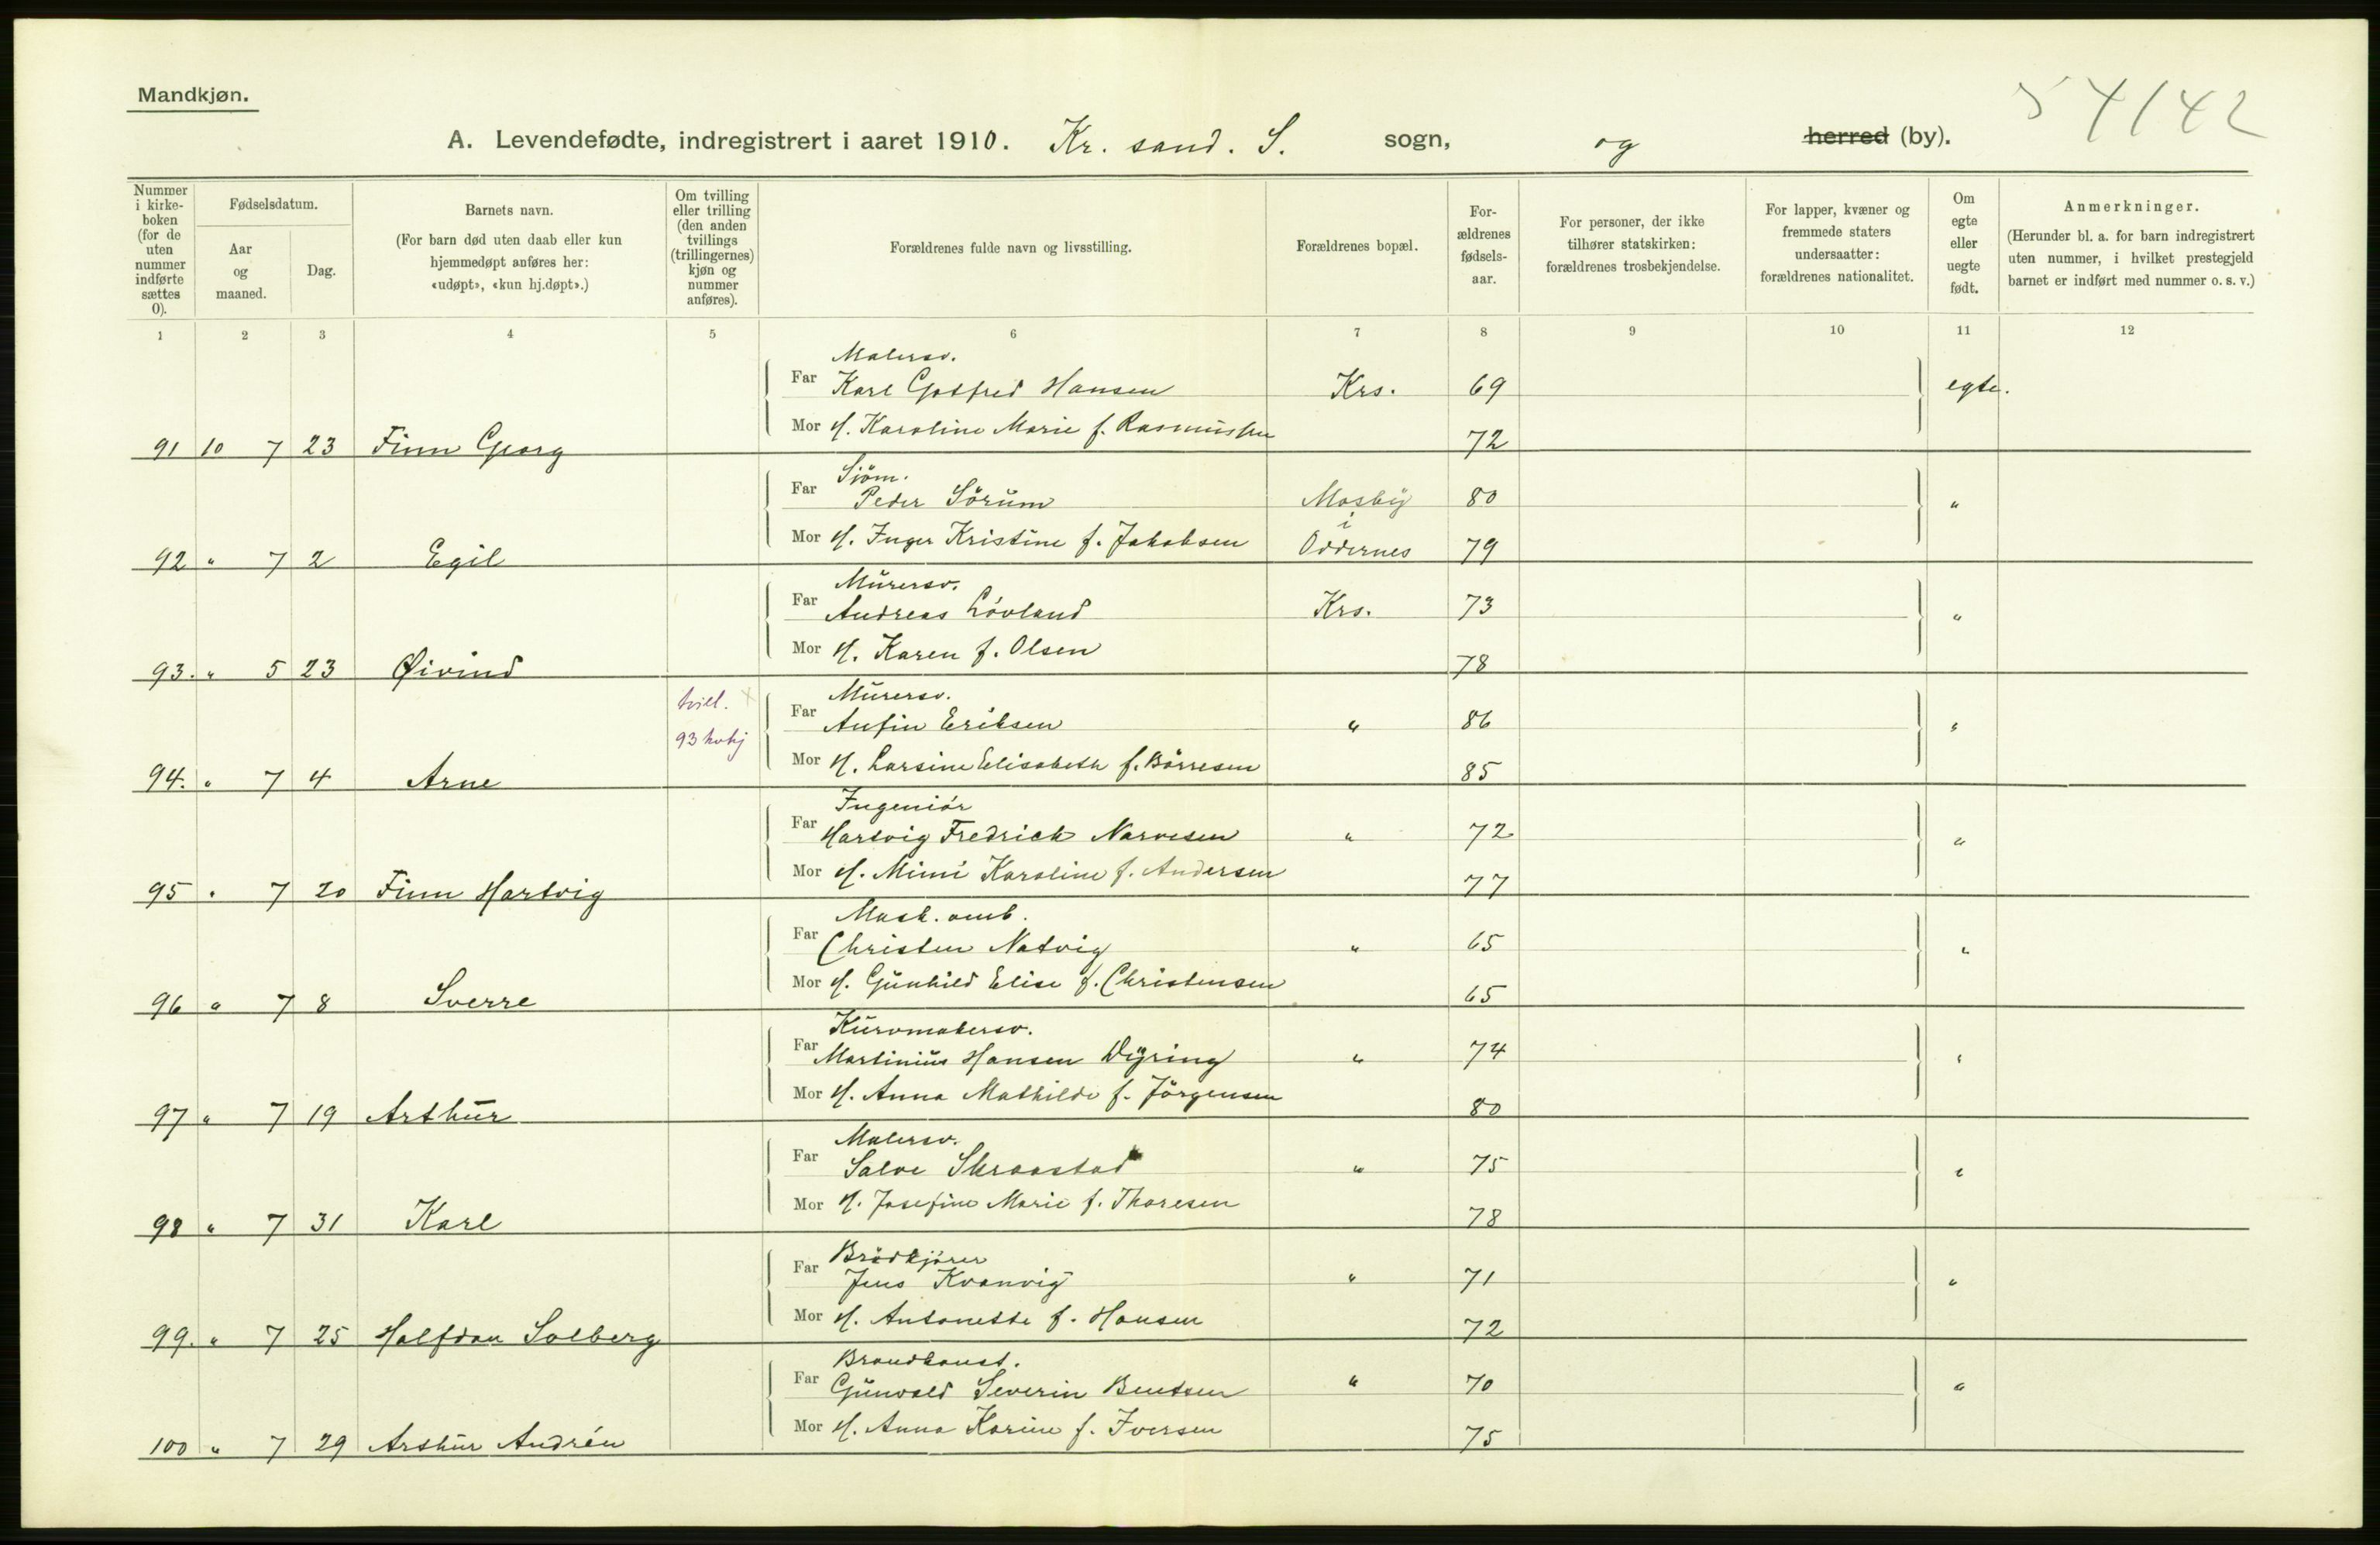 Mandkjøn.
54142
A. Levendefødte, indregistrert i aaret 1910. Kr. sand. S. sogn, og herred (by).
Nummer i kirke-boken (for de uten nummer indførte sættes 0).
Fødselsdatum.
Aar og maaned.
Dag.
Barnets navn.
(For barn død uten daab eller kun hjemmedøpt anføres her: «udøpt», «kun hj.døpt».)
Om tvilling eller trilling (den anden tvillings (trillingernes) kjøn og nummer anføres).
Forældrenes fulde navn og livsstilling.
Forældrenes bopæl.
For-ældrenes fødsels-aar.
For personer, der ikke tilhører statskirken: forældrenes trosbekjendelse.
For lapper, kvæner og fremmede staters undersaatter: forældrenes nationalitet.
Om egte eller uegte født.
Anmerkninger.
(Herunder bl. a. for barn indregistrert uten nummer, i hvilket prestegjeld barnet er indført med nummer o. s. v.)
1 2 3 4 5 6 7 8 9 10 11 12
Malersv.
Far Karl Gotfred Hansen Krs. 69 egte.
Mor H. Karoline Marie f. Rasmussen 72
91 10 7 23 Finn Georg
Sjöm.
Far Peder Sörum Mosby 80 "
i
Mor H. Inger Kristine f. Jakobsen Oddernes 79
92 " 7 2 Egil
Murersv.
Far Andreas Lövland Krs. 73 "
Mor H. Karen f. Olsen 78
93. " 5 23 Øivind
tvill. x
93 kvkj
Murersv.
Far Anfin Eriksen " 86 "
Mor H. Larsine Elisabeth f. Börresen 85
94. " 7 4 Arne
Ingeniör
Far Hartvig Fredrick Narvesen " 72 "
Mor H. Mimi Karoline f. Andersen 77
95 " 7 20 Finn Hartvig
Mask. omb.
Far Christen Natvig " 65 "
Mor H. Gunhild Elise f. Christensen 65
96 " 7 8 Sverre
Kurvmakersv.
Far Martinius Hansen Dyring " 74 "
Mor H. Anna Mathilde f. Jörgensen 80
97 " 7 19 Arthur
Malersv.
Far Salve Skraastad " 75 "
Mor H. Josefine Marie f. Thoresen 78
98 " 7 31 Karl
Brödkjörer
Far Jens Kvanvig " 71 "
Mor H. Antonette f. Hansen 72
99. " 7 25 Halfdan Solberg
Brandkonst.
Far Gunvald Severin Bentsen " 70 "
Mor H. Anna Karine f. Iversen 75
100 " 7 29 Arthur Andréu